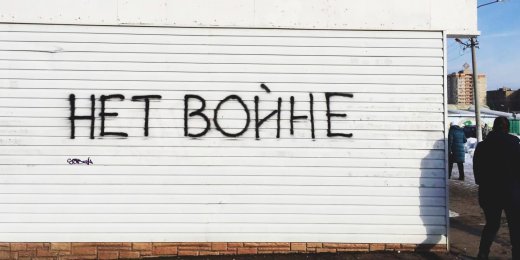 НЕТ ВОЙНЕ